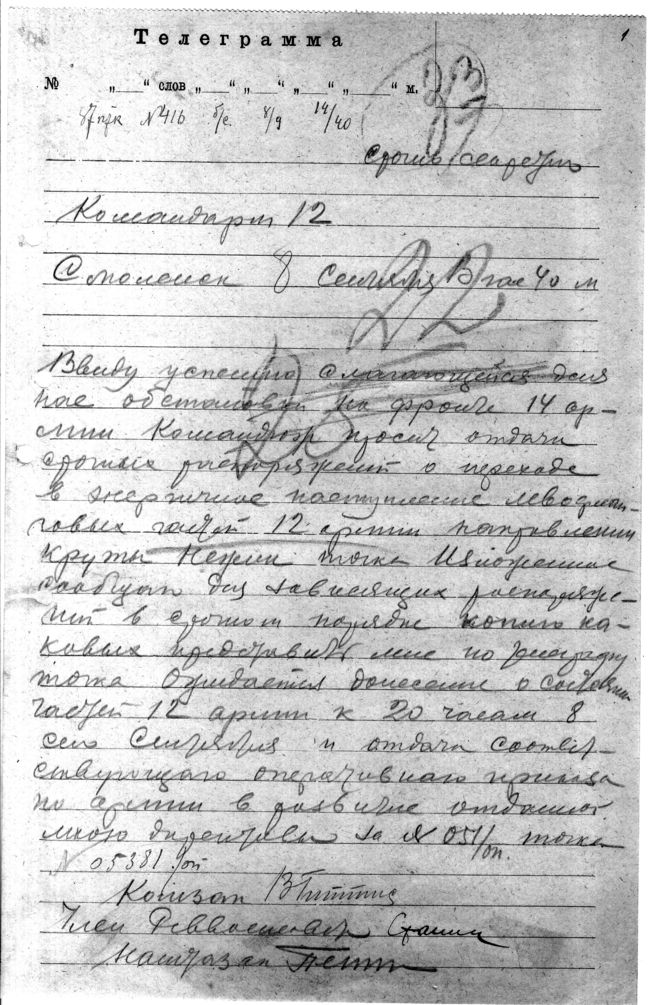 1
Телеграмма
№ „ “ слов „ “ „ “ „ “ „ “ м.
№416 б/с. 8/9 14/40
срочно секретно
Командарм 12
Смоленск 8 Сентября 40 м
22
Ввиду успешно слагающейся для
нас обстановки на фронте 14 ар-
мии просит отдачи
срочных распоряжений о переходе
в энергичное наступление левофлан-
говых частей 12 армии направлении
Круты Нежин точка Изложенное
сообщаю для зависящих распоряже-
ний в срочном порядке копию ка-
ковых представить мне по телеграфу
точка Ожидается донесение о состоянии
частей 12 армии к 20 часам 8
сего Сентября и отдачи соответ-
ствующаго оперативнаго приказа
по армии в развитие отданной
мною директивы за № 051/оп. точка
№ 05381/оп
Комзап ВГиттис
Член Реввоенсовета Сталин
Наштазап Петин